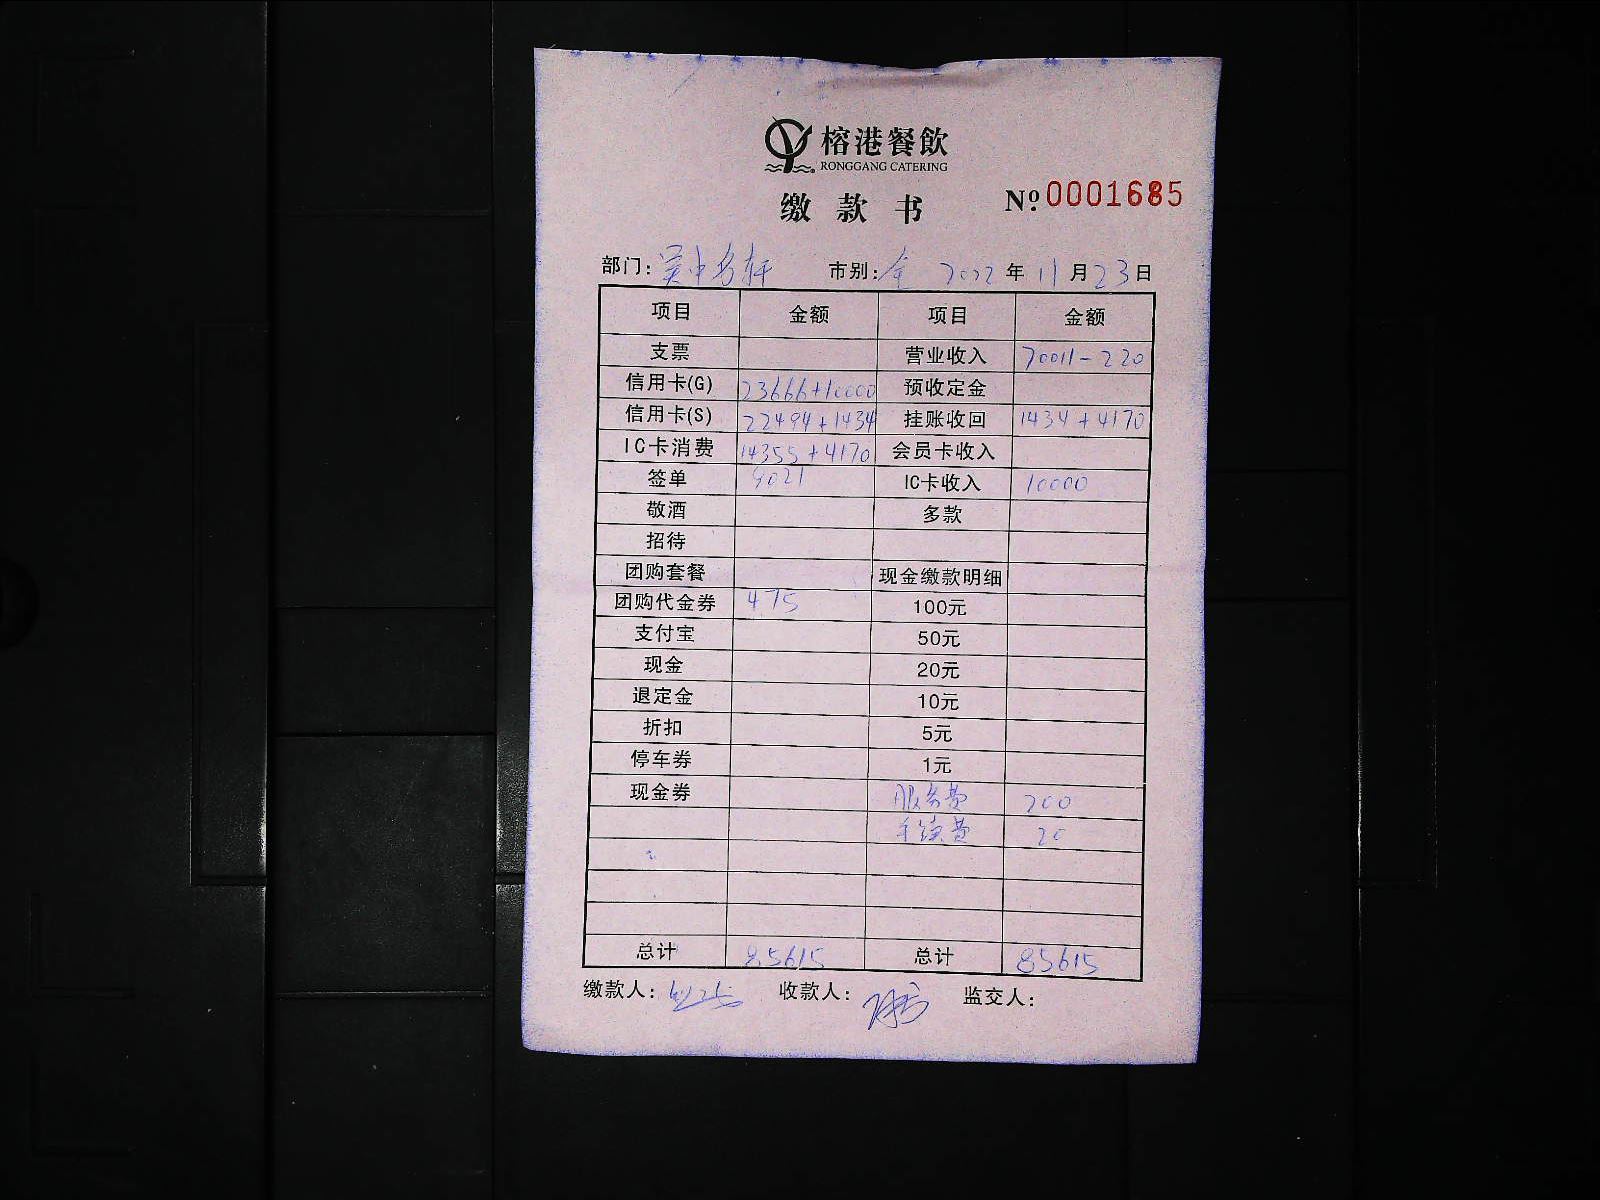 榕港餐飲
RONGGANG CATERING
缴款书
Nº 0001685
部门: 吴中名轩 市别: 全 2022 年 11 月 23 日
项目 金额 项目 金额
支票 营业收入 70011-220
信用卡(G) 23666+10000 预收定金
信用卡(S) 22494+1434 挂账收回 1434+4170
IC卡消费 14355+4170 会员卡收入
签单 9021 IC卡收入 10000
敬酒 多款
招待
团购套餐 现金缴款明细
团购代金券 475 100元
支付宝 50元
现金 20元
退定金 10元
折扣 5元
停车券 1元
现金券 服务费 200
手续费 20
总计 85615 总计 85615
缴款人: 收款人: 监交人: